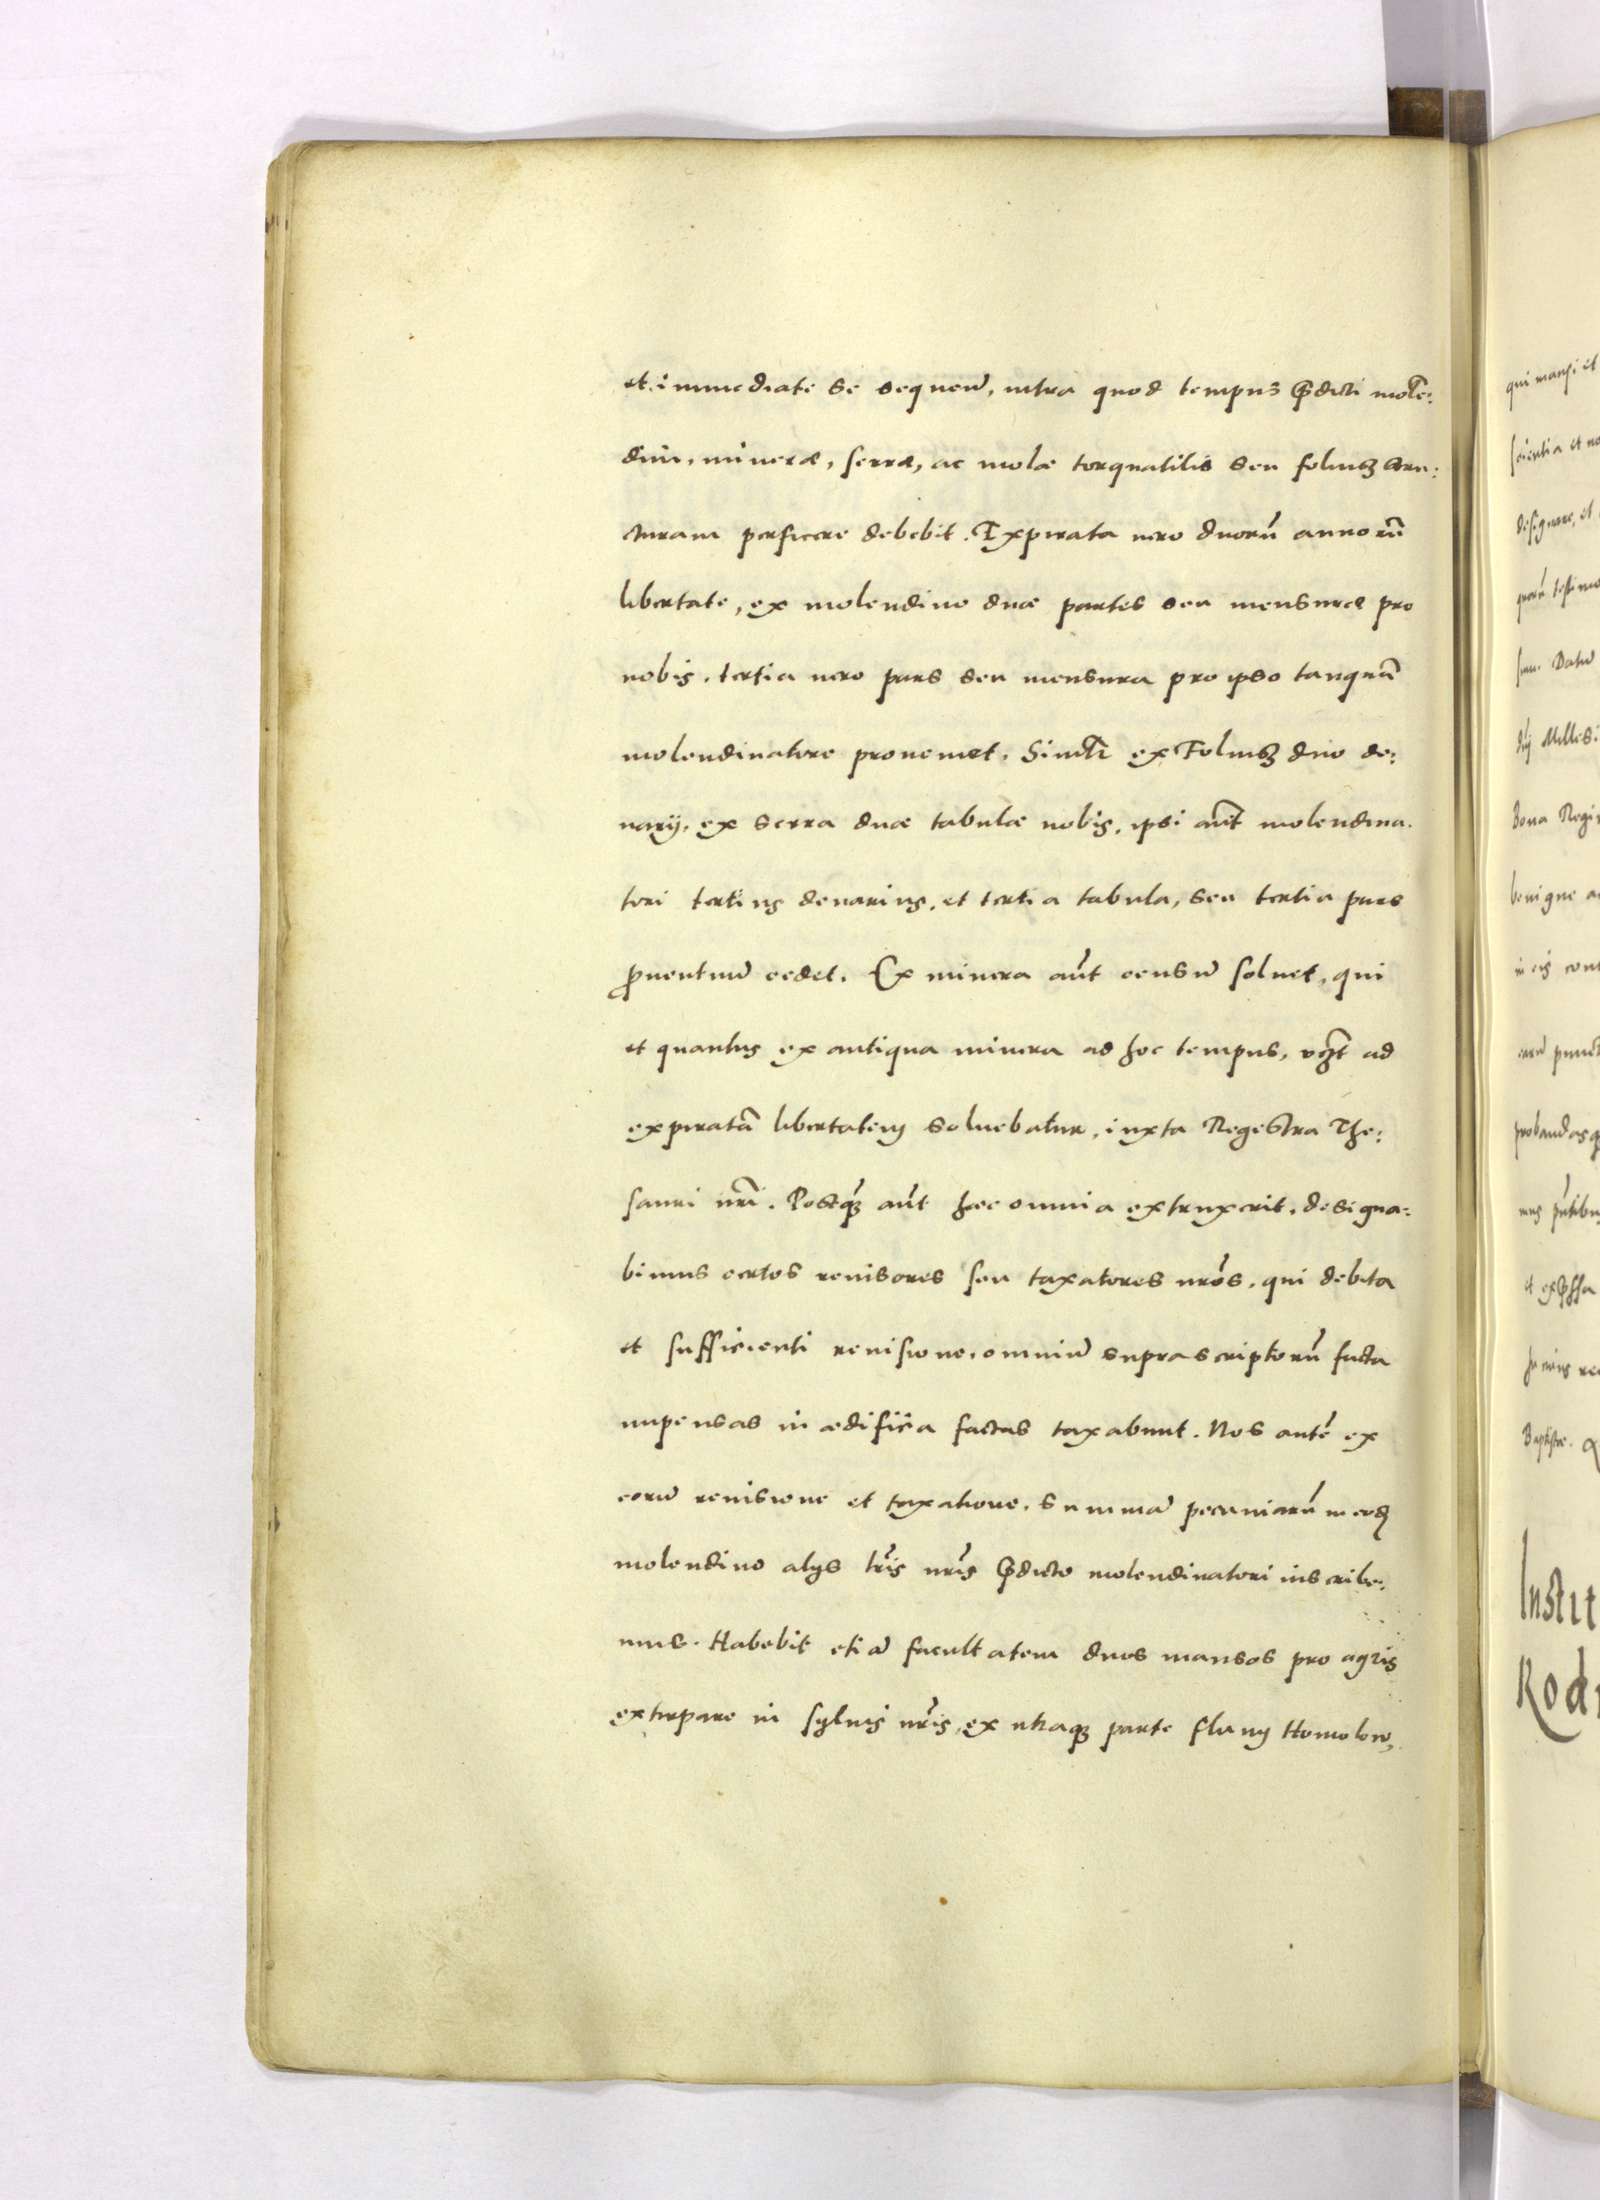 et immediate se sequeñ, intra quod tempus p̃dicti molẽ:
dini, mineræ, serræ, ac molæ torquatilis seu folusz stru:
cturam perficere debebit. Expirata uero duorũ annorũ
libertate, ex molendino duæ partes seu mensuræ pro
nobis, tertia uero pars seu mensura pro ipso tanquã
molendinatore proueniet. Simlr̃ ex Folusz duo de:
narij, ex serra duæ tabulæ nobis, ipsi aũt molendina.
tori tertius denarius, et tertia tabula, seu tertia pars
ꝓuentuũ cedet. Ex minera aũt censũ soluet, qui
et quantus ex antiqua minera ad hoc tempus, vꝫ̃t ad
expiratã libertatem soluebatur, iuxta Regestra The:
sauri nr̃i. Postqꝫ̃ aũt hæc omnia extruxerit, designa:
bimus certos reuisores seu taxatores nrõs, qui debita
et sufficienti reuisione, omniũ suprascriptorũ facta
impensas in ædificia factas taxabunt. Nos autẽ ex
eorũ reuisione et taxatione, summã pecuniarũ in eodẽ
molendino alijs lr̃is nr̃is p̃dicto molendinatori inscribe:
mus. Habebit etiã facultatem duos mansos pro agris
extirpare in syluis nr̃is, ex utraqꝫ parte fluuij Homolow,
qui mansi et
scientia et
designare, et
quorũ testimo
Datũ
Millesi:
Bona Regi
benigne
in eis cont
probandasqꝫ
Baptistæ.
Instit
Rod